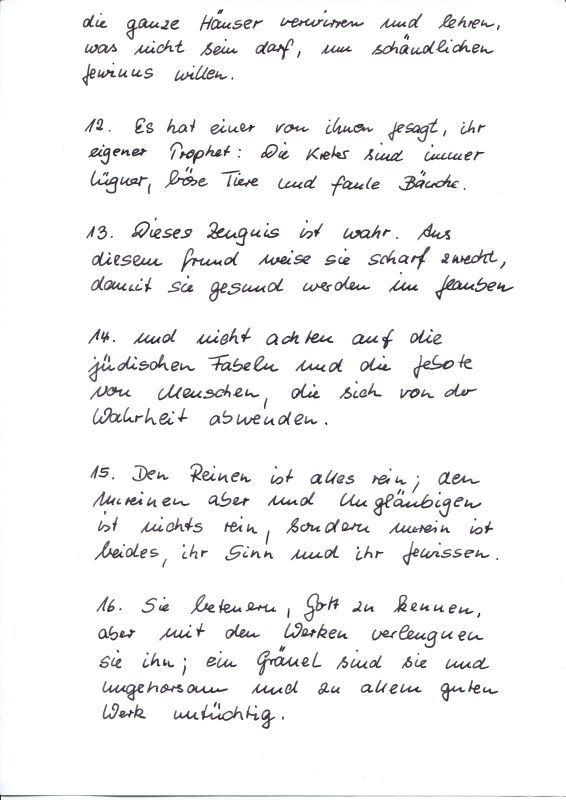 die ganze Häuser verwirren und lehren,
was nicht sein darf, um schändlichen
Gewinns willen.
12. Es hat einer von ihnen gesagt, ihr
eigener Prophet: Die Kreter sind immer
Lügner, böse Tiere und faule Bäuche.
13. Dieses Zeugnis ist wahr. Aus
diesem Grund weise sie scharf zurecht,
damit sie gesund werden im Glauben
14. und nicht achten auf die
jüdischen Fabeln und die Gebote
von Menschen, die sich von der
Wahrheit abwenden.
15. Den Reinen ist alles rein; den
Unreinen aber und Ungläubigen
ist nichts rein, sondern unrein ist
beides, ihr Sinn und ihr Gewissen.
16. Sie beteuern, Gott zu kennen,
aber mit den Werken verleugnen
sie ihn; ein Gräuel sind sie und
ungehorsam und zu allem guten
Werk untüchtig.